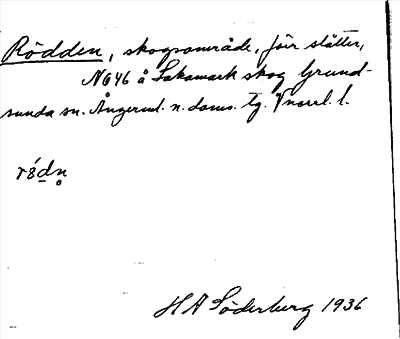 Rödden, skogsområde, förr slåtter,
N646 å Lakamark skog Grund-
sunda sn. Ångerml. n. doms. tg. Vnorrl. l.
H A Söderberg 1936